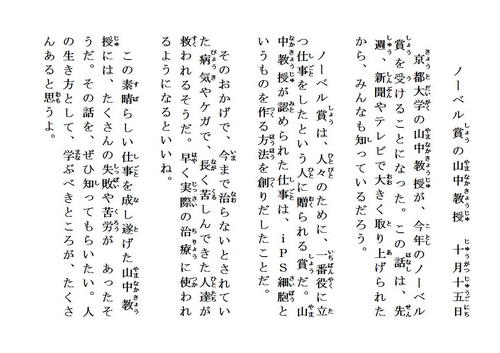 ノーベル賞の山中教授　十月十五日
京都大学の山中教授が、今年のノーベル
賞を受けることになった。この話は、先
週、新聞やテレビで大きく取り上げられた
から、みんなも知っているだろう。
ノーベル賞は、人びとのために、一番役に立
つ仕事をしたという人に贈られる賞だ。山
中教授が認められた仕事は、iPS細胞と
いうものを作る方法を創りだしたことだ。
そのおかげで、今まで治らないとされてい
た病気やケガで、長く苦しんできた人達が
救われるそうだ。早く実際の治療に使われ
るようになるといいね。
この素晴らしい仕事を成し遂げた山中教
授には、たくさんの失敗や苦労が　あったそ
うだ。その話を、ぜひ知ってもらいたい。人
の生き方として、学ぶべきところが、たくさ
んあると思うよ。